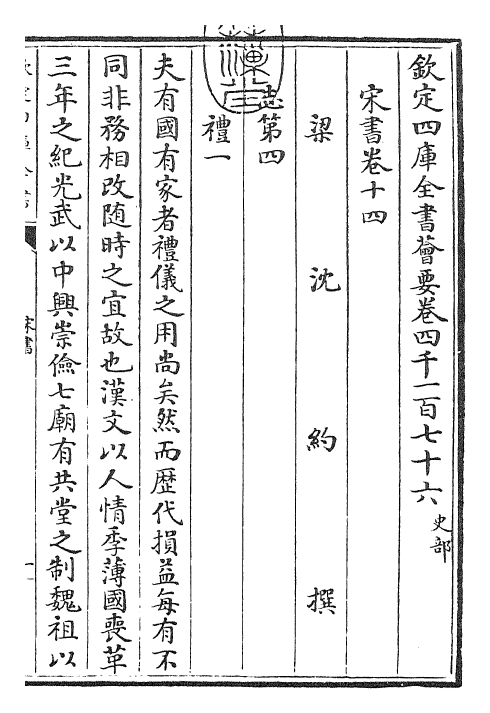 欽定四庫全書薈要卷四千一百七十六史部
宋書卷十四
梁沈約撰
志第四
禮一
夫有國有家者禮儀之用尚矣然而歴代損益每有不
同非務相改随時之宜故也漢文以人情季薄國喪革
三年之紀光武以中興崇儉七廟有共堂之制魏祖以
宋書